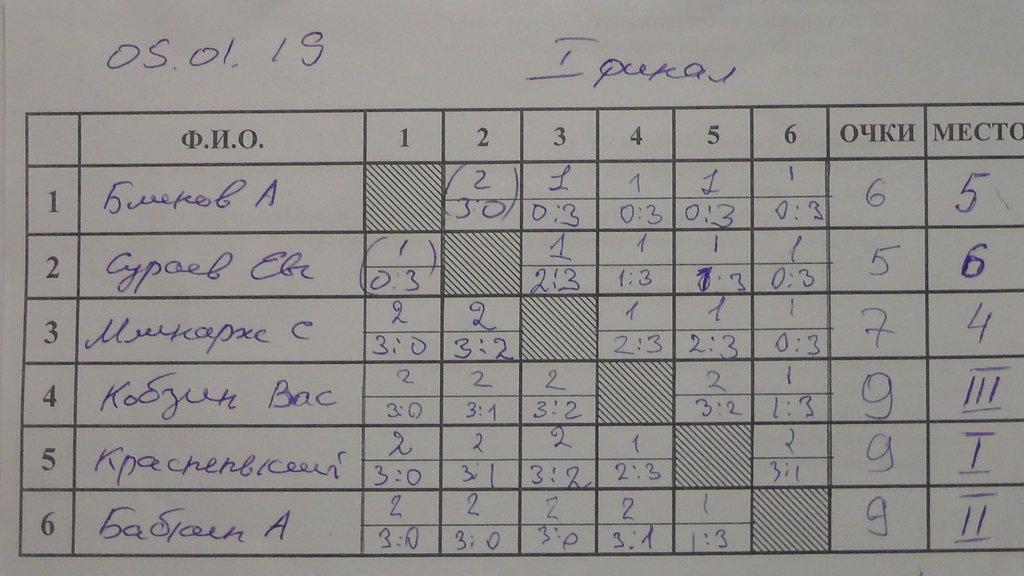 05.01.19 I финал
Ф.И.О. 1 2 3 4 5 6 ОЧКИ МЕСТО
1 Блинов А (2 1 1 1 1 6 5
3:0) 0:3 0:3 0:3 0:3
2 Сураев Евг (1 1 1 1 1 5 6
0:3) 2:3 1:3 1:3 0:3
3 С 2 2 1 1 1 7 4
3:0 3:2 2:3 2:3 0:3
4 Кобзин Вас 2 2 2 2 1 9 III
3:0 3:1 3:2 3:2 1:3
5 2 2 2 1 2 9 I
3:0 3:1 3:2 2:3 3:1
6 А 2 2 2 2 1 9 II
3:0 3:0 3:0 3:1 1:3